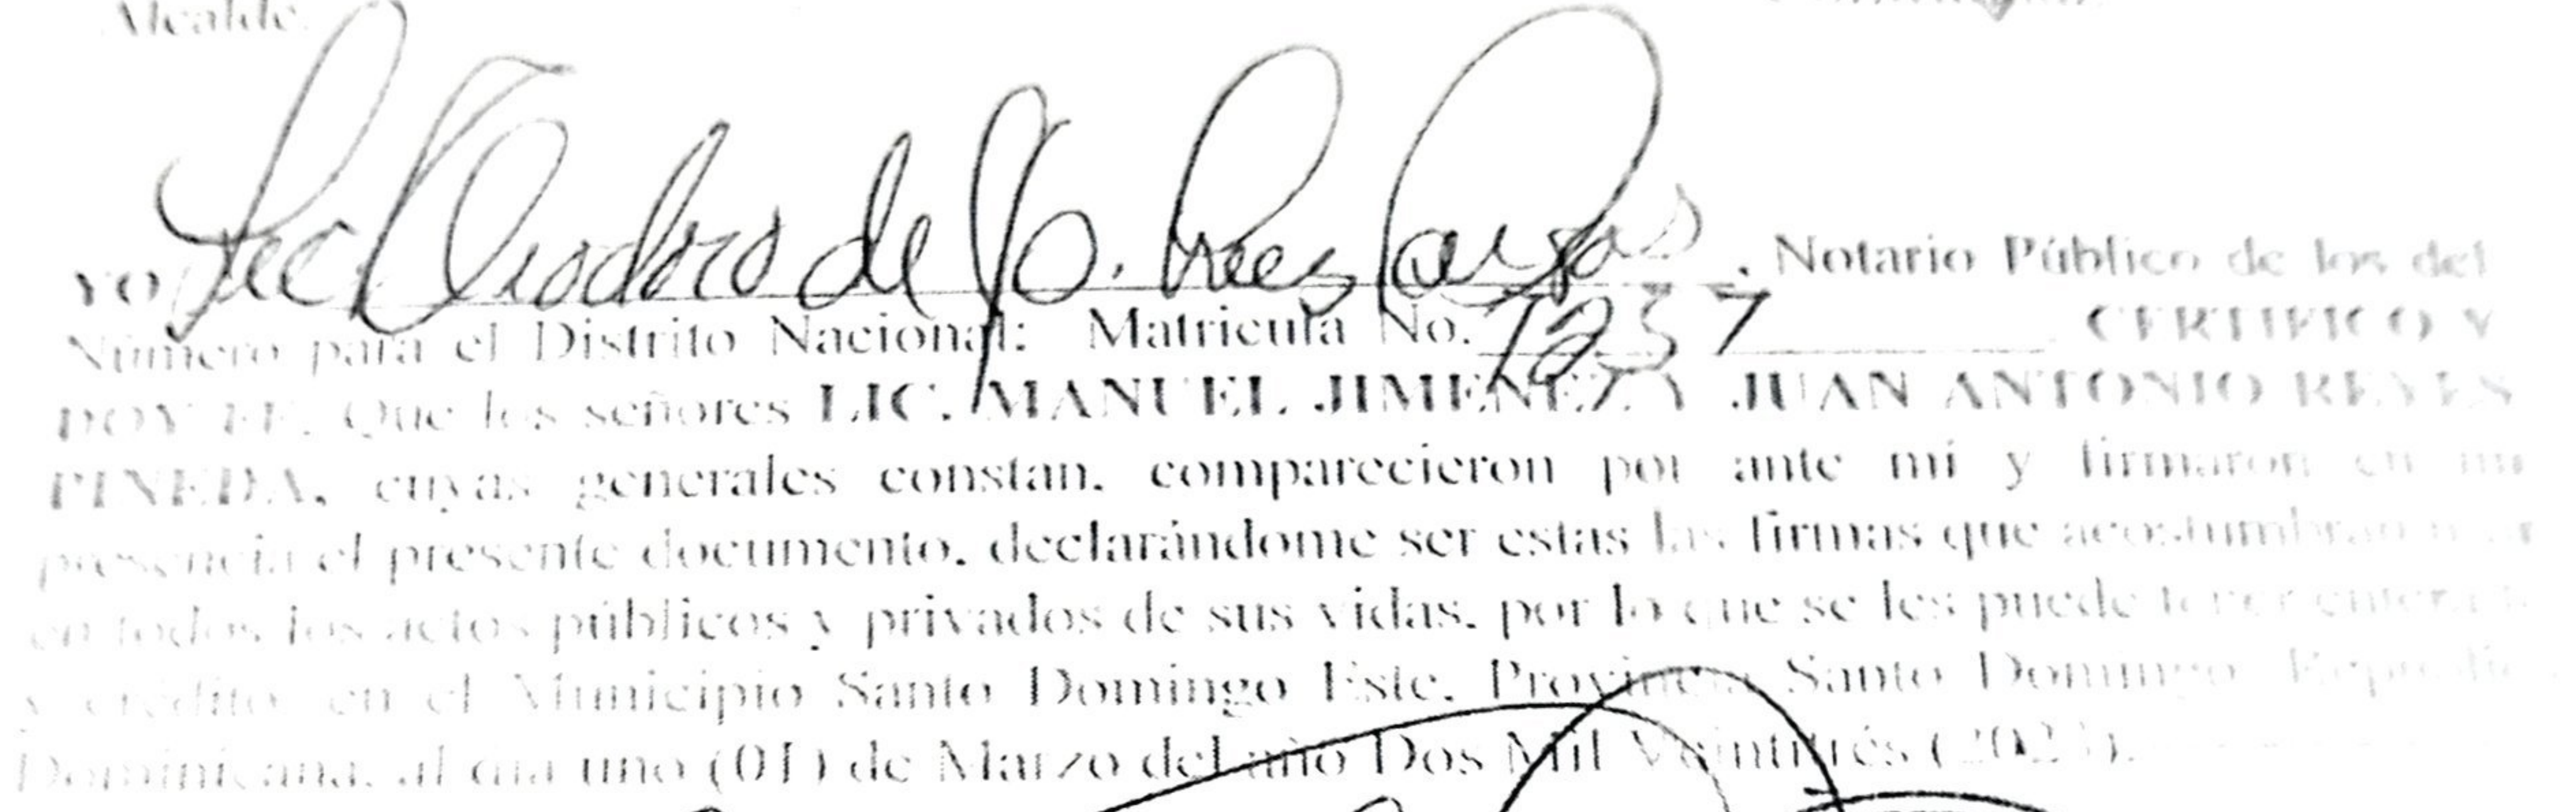 Alcalde.
YO Lic Teodoro de Js. Ines Vargas, Notario Público de los del
Número para el Distrito Nacional: Matricula No. 7237 CERTIFICO Y
DOY FE, Que los señores LIC. MANUEL JIMENEZ Y JUAN ANTONIO REYES
PINEDA, cuyas generales constan, comparecieron por ante mí y firmaron en mi
presencia el presente documento, declarándome ser estas las firmas que acostumbran usar
en todos los actos públicos y privados de sus vidas, por lo que se les puede tener entera fe
y crédito, en el Municipio Santo Domingo Este, Provincia Santo Domingo, República
Dominicana, al día uno (01) de Marzo del año Dos Mil Veintitrés (2023).